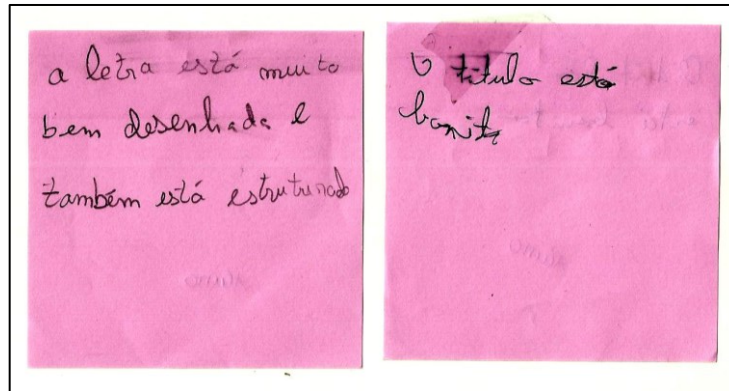 a letra está muito
bem desenhada e
também está estruturado
O titulo está
bonito